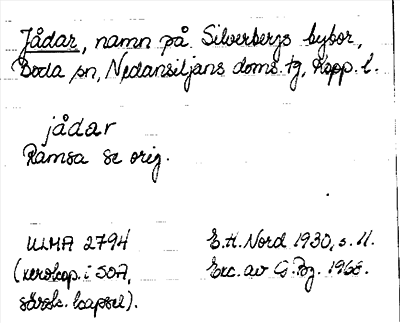 Jådar, namn på Silverbergs bybor,
Boda sn, Nedansiljans doms. tg, Kopp. l.
jådar
Ramsa se orig.
ULMA 2794
E.H. Nord 1930, s. 11.
(xerokop. i SOA,
Exc. av G. Bg. 1968.
särsk. kapsel).